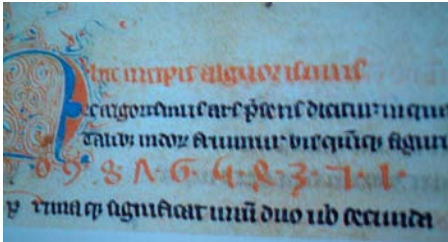 Hinc incipit algorismus
Hec algorismus ars p̄sens dicitur in qua
Talibȝ indoȝ fruimur bis quīqȝ figuris
0 · 9 · 8 · 7 · 6 · 5 · 4 · 3 · 2 · 1 ·
p rima qȝ significat unū duo ūo secunda